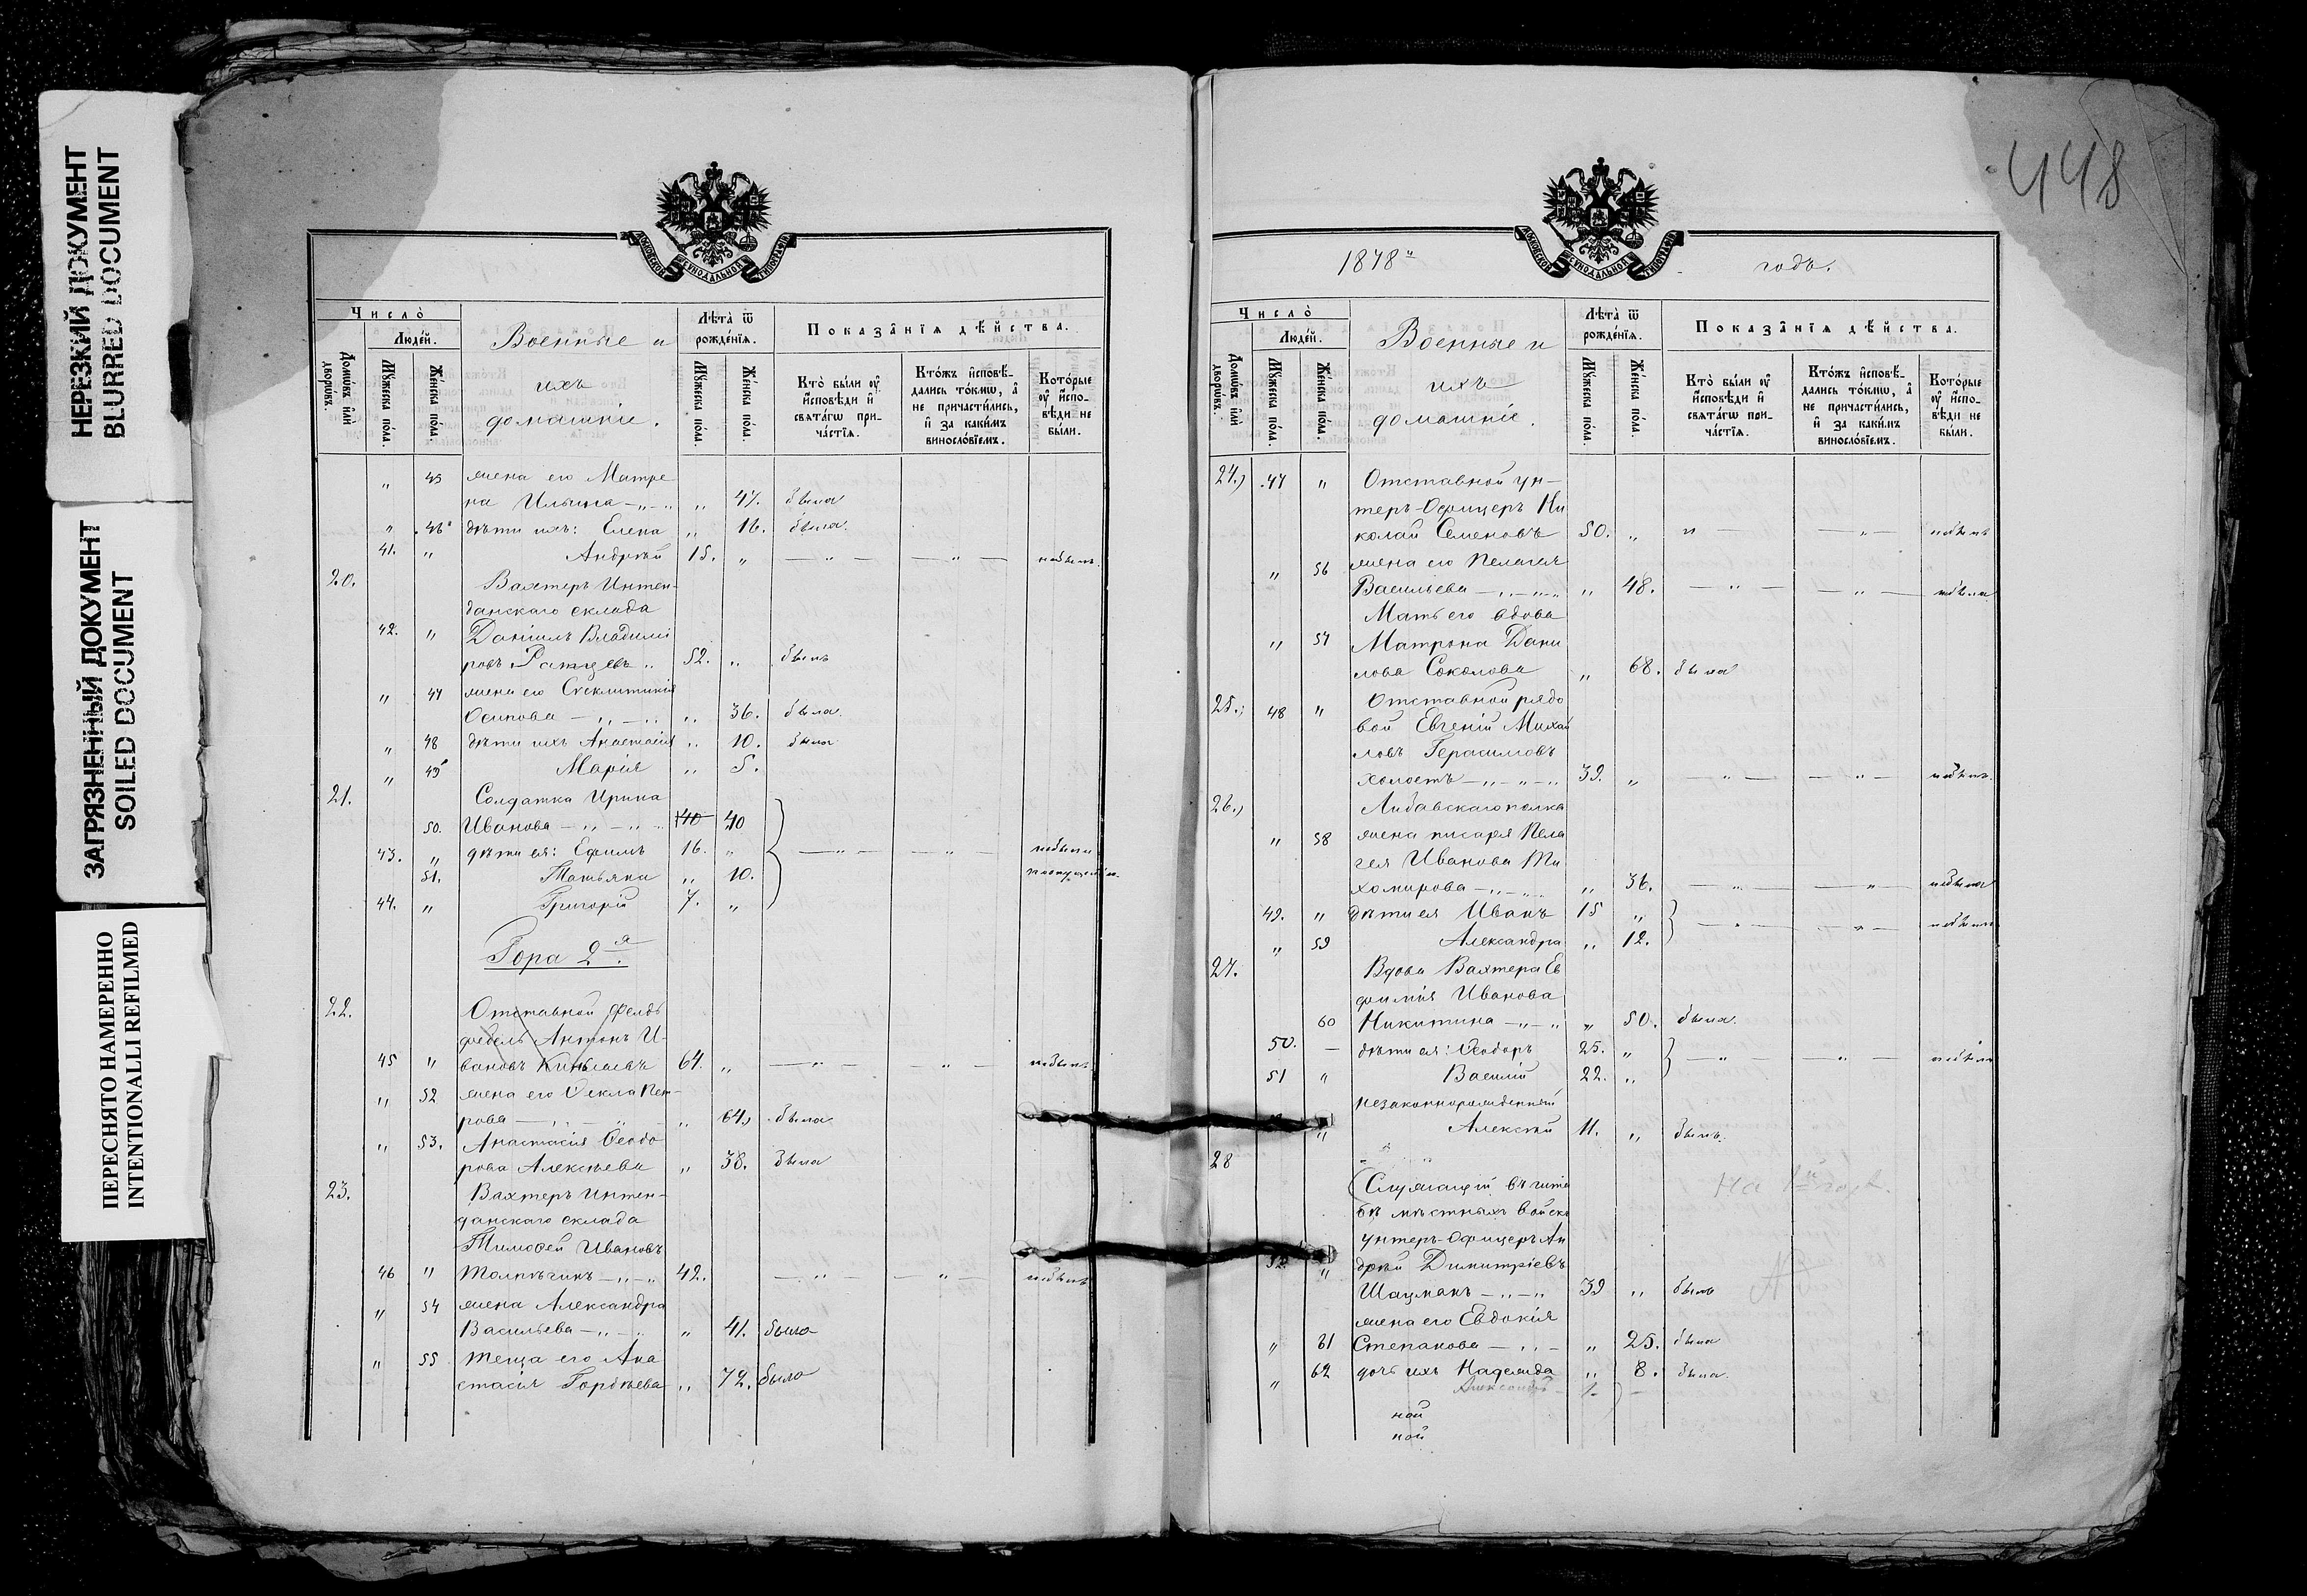 НЕРЕЗКИЙ ДОКУМЕНТ
BLURRED DOCUMENT
ЗАГРЯЗНЕННЫЙ ДОКУМЕНТ
SOILED DOCUMENT
ПЕРЕСНЯТО НАМЕРЕННО
INTENTIONALLI REFILMED
МОСКОВСКОЙ СѴНОДАЛЬНОЙ ТИПОГРАФІИ
Число̀
Люде́й.
Домѡ́въ и҆лѝ дворѡ́въ.
Мꙋ́жеска по́ла.
Же́нска по́ла.
Военные и
ихъ
домашніе.
Лѣ́та ѿ рожде́нїѧ.
Мꙋ́жеска по́ла.
Же́нска по́ла.
Показа̂нїѧ дѣ́йства.
Кто̀ бы́ли ᲂу҆
и҆сповѣ́ди и҆
свѧта́гѡ при-
ча́стїѧ.
Кто́жъ и҆сповѣ́-
дались то́кмѡ, а҆
не причасти́лись,
и҆ за каки́мъ
винослѡ́вїемъ.
Кото́рые
ᲂу҆ и҆спо-
вѣ́ди не
бы́ли.
„ 45 жена его Матре
на Ильина „ 47. была
„ 46 дѣти ихъ: Елена „ 16. была
41. „ Андрѣй 15. „ — „ — — „ — небылъ
20. Вахтеръ Интен-
данскаго склада
42. „ Даніилъ Владимі
ровъ Ратцевъ „ 52. „ былъ
„ 47 жена его Сѵсклитикія
Осипова — „ — „ „ 36. была
„ 48 дѣти ихъ Анастасія „ 10. была
„ 49 Марія „ 5.
21. Солдатка Ирина
50. Иванова — „ — „ 40 40
43. „ дѣти ея: Ефимъ 16. „ — „ — — „ — небыли
51. Татьяна „ 10.
44. „ Григорій 7. „
Гора 2я.
22. Отставной фельд
фебель Антонъ И-
45 „ вановъ 64. „ — „ — — „ — небылъ
„ 52 жена его Ѳекла Пет-
рова „ 64, была
„ 53. Анастасія Ѳеодо
рова Алексѣева „ 38. была
23. Вахтеръ Интен-
данскаго склада
Тимоѳей Ивановъ
46 „ — „ — „ 42. — „ — — „ — небылъ
„ 54 жена Александра
Васильева — „ — „ „ 41. была
„ 55 теща его Ана
стасія Гордѣева „ 72. была
448
1878 годъ.
МОСКОВСКОЙ СѴНОДАЛЬНОЙ ТИПОГРАФІИ
Число̀
Люде́й.
Домѡ́въ и҆лѝ дворѡ́въ.
Мꙋ́жеска по́ла.
Же́нска по́ла.
Военные и
ихъ
домашніе.
Лѣ́та ѿ рожде́нїѧ.
Мꙋ́жеска по́ла.
Же́нска по́ла.
Показа̂нїѧ дѣ́йства.
Кто̀ бы́ли ᲂу҆
и҆сповѣ́ди и҆
свѧта́гѡ при-
ча́стїѧ.
Кто́жъ и҆сповѣ́-
дались то́кмѡ, а҆
не причасти́лись,
и҆ за каки́мъ
винослѡ́вїемъ.
Кото́рые
ᲂу҆ и҆спо-
вѣ́ди не
бы́ли.
24,) 47 „ Отставной ун-
теръ-Офицеръ Ни
колай Семеновъ 50. „ „ — — „ — небылъ
„ 56 жена его Пелагея
Васильева — „ — „ „ 48. — „ — — „ — небыла
Мать его вдова
„ 57 Матрона Дани
лова Соколова „ 68. была
25. 48 „ Отставной рядо
вой Евгеній Михаи
ловъ Герасимовъ
холостъ — „ — „ 39. „ — „ — — „ — небылъ
26,) Либавскаго полка
„ 58 жена писаря Пела
гея Иванова Ти
хомирова — „ — „ „ 36. — „ — — „ — небыла
49. „ дѣти ея Иванъ 15 „ — „ — — „ — небыли
„ 59 Александра „ 12.
27. Вдова Вахтера Ев
фимія Иванова
60 Никитина — „ — „ „ 50. была
50. — дѣти ея: Ѳеодоръ 25. „ — „ — — „ — небыли
51 „ Василій 22. „
незаконнорожденный
„ Алексѣй 11. „ былъ.
28
Служащій въ шта
бѣ мѣстныхъ войскъ
унтеръ-Офицеръ Ан
52. „ дрей Димитріевъ
Шацманъ — „ — „ 39 „ былъ
жена его Евдокія
„ 61 Степанова — „ — „ 25. была
„ 62 дочь ихъ Надежда „ 8. была.
Александръ 1
ной
ной